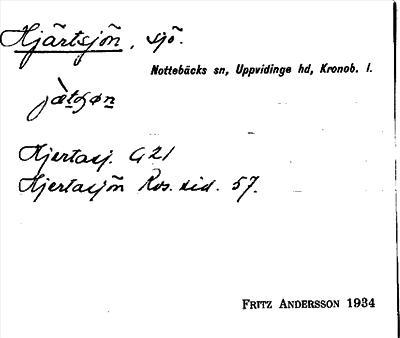 Hjärtsjön, sjö.
Nottebäcks sn, Uppvidinge hd, Kronob. l.
Hjertasj. G21
Hjertasjön Ros. sid. 57.
FRITZ ANDERSSON 1934